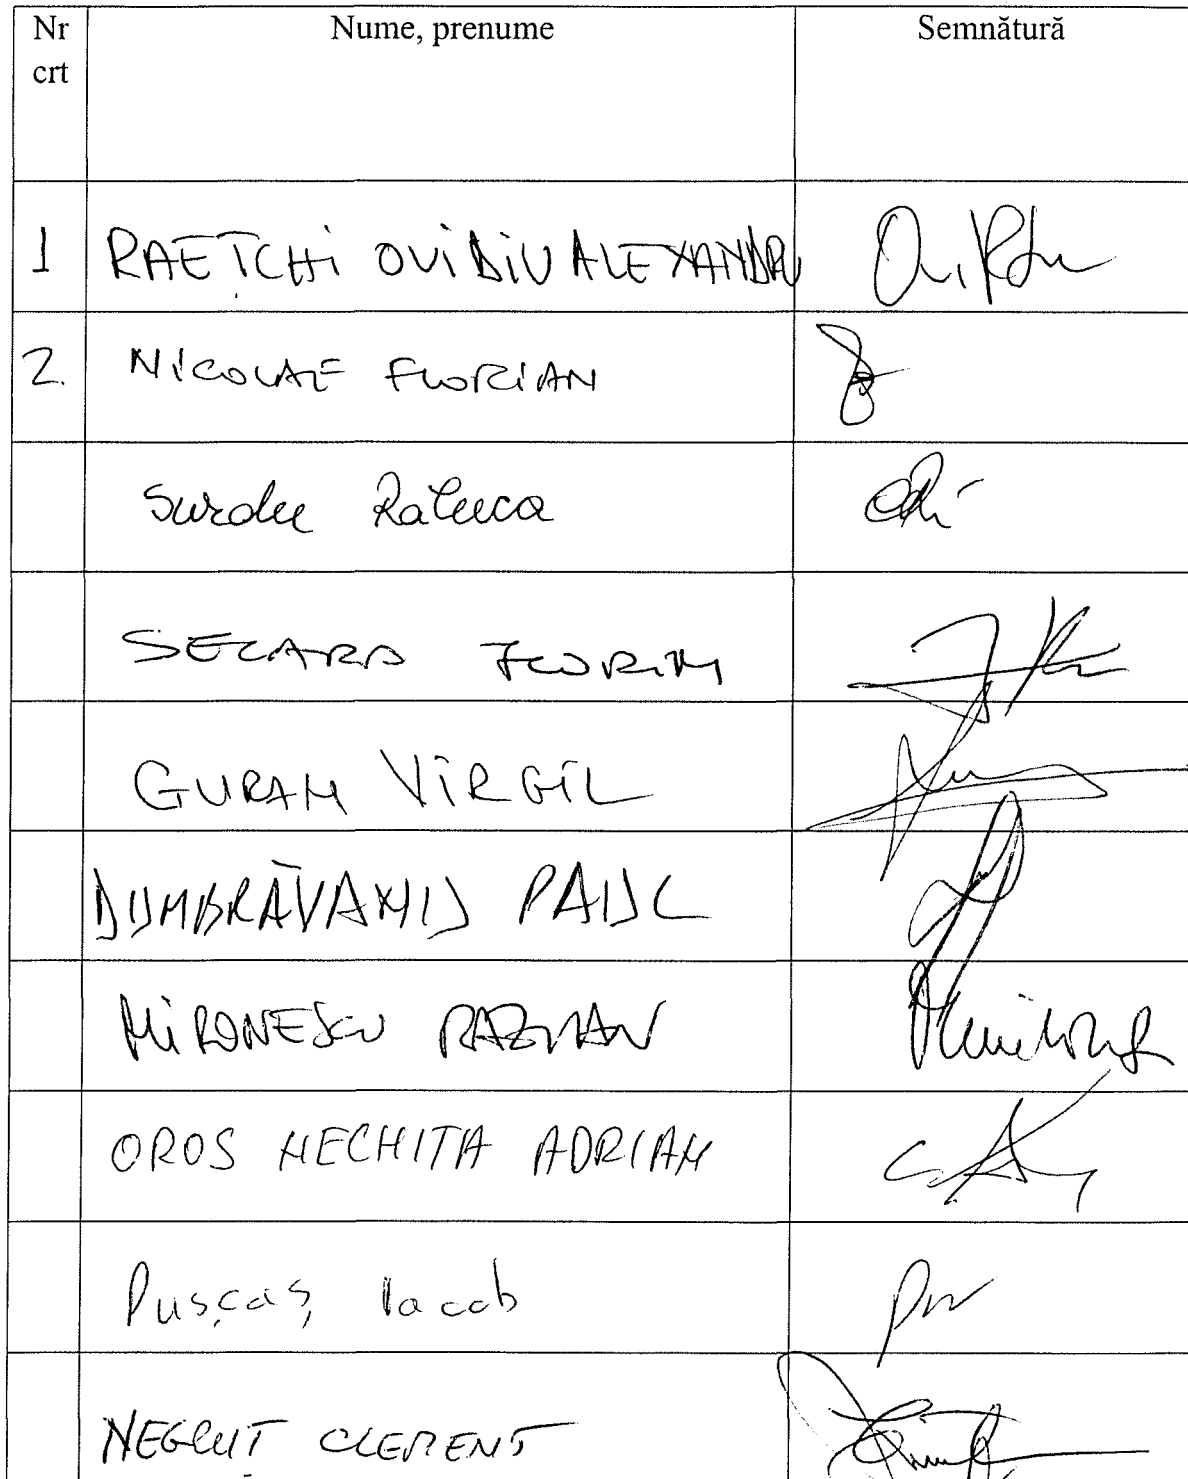 Nr Nume, prenume Semnătură
crt
1 RAEȚCHi OViDiU ALEXANDRU
2. NICOLAE FLORIAN
Surdu Raluca
SECARĂ FLORIN
GURAN ViRGiL
DUMBRĂVANU PAUL
MiRONESCU RAZVAN
OROS NECHITA ADRIAN
Pușcaș Iacob
NEGRUȚ CLEMENT